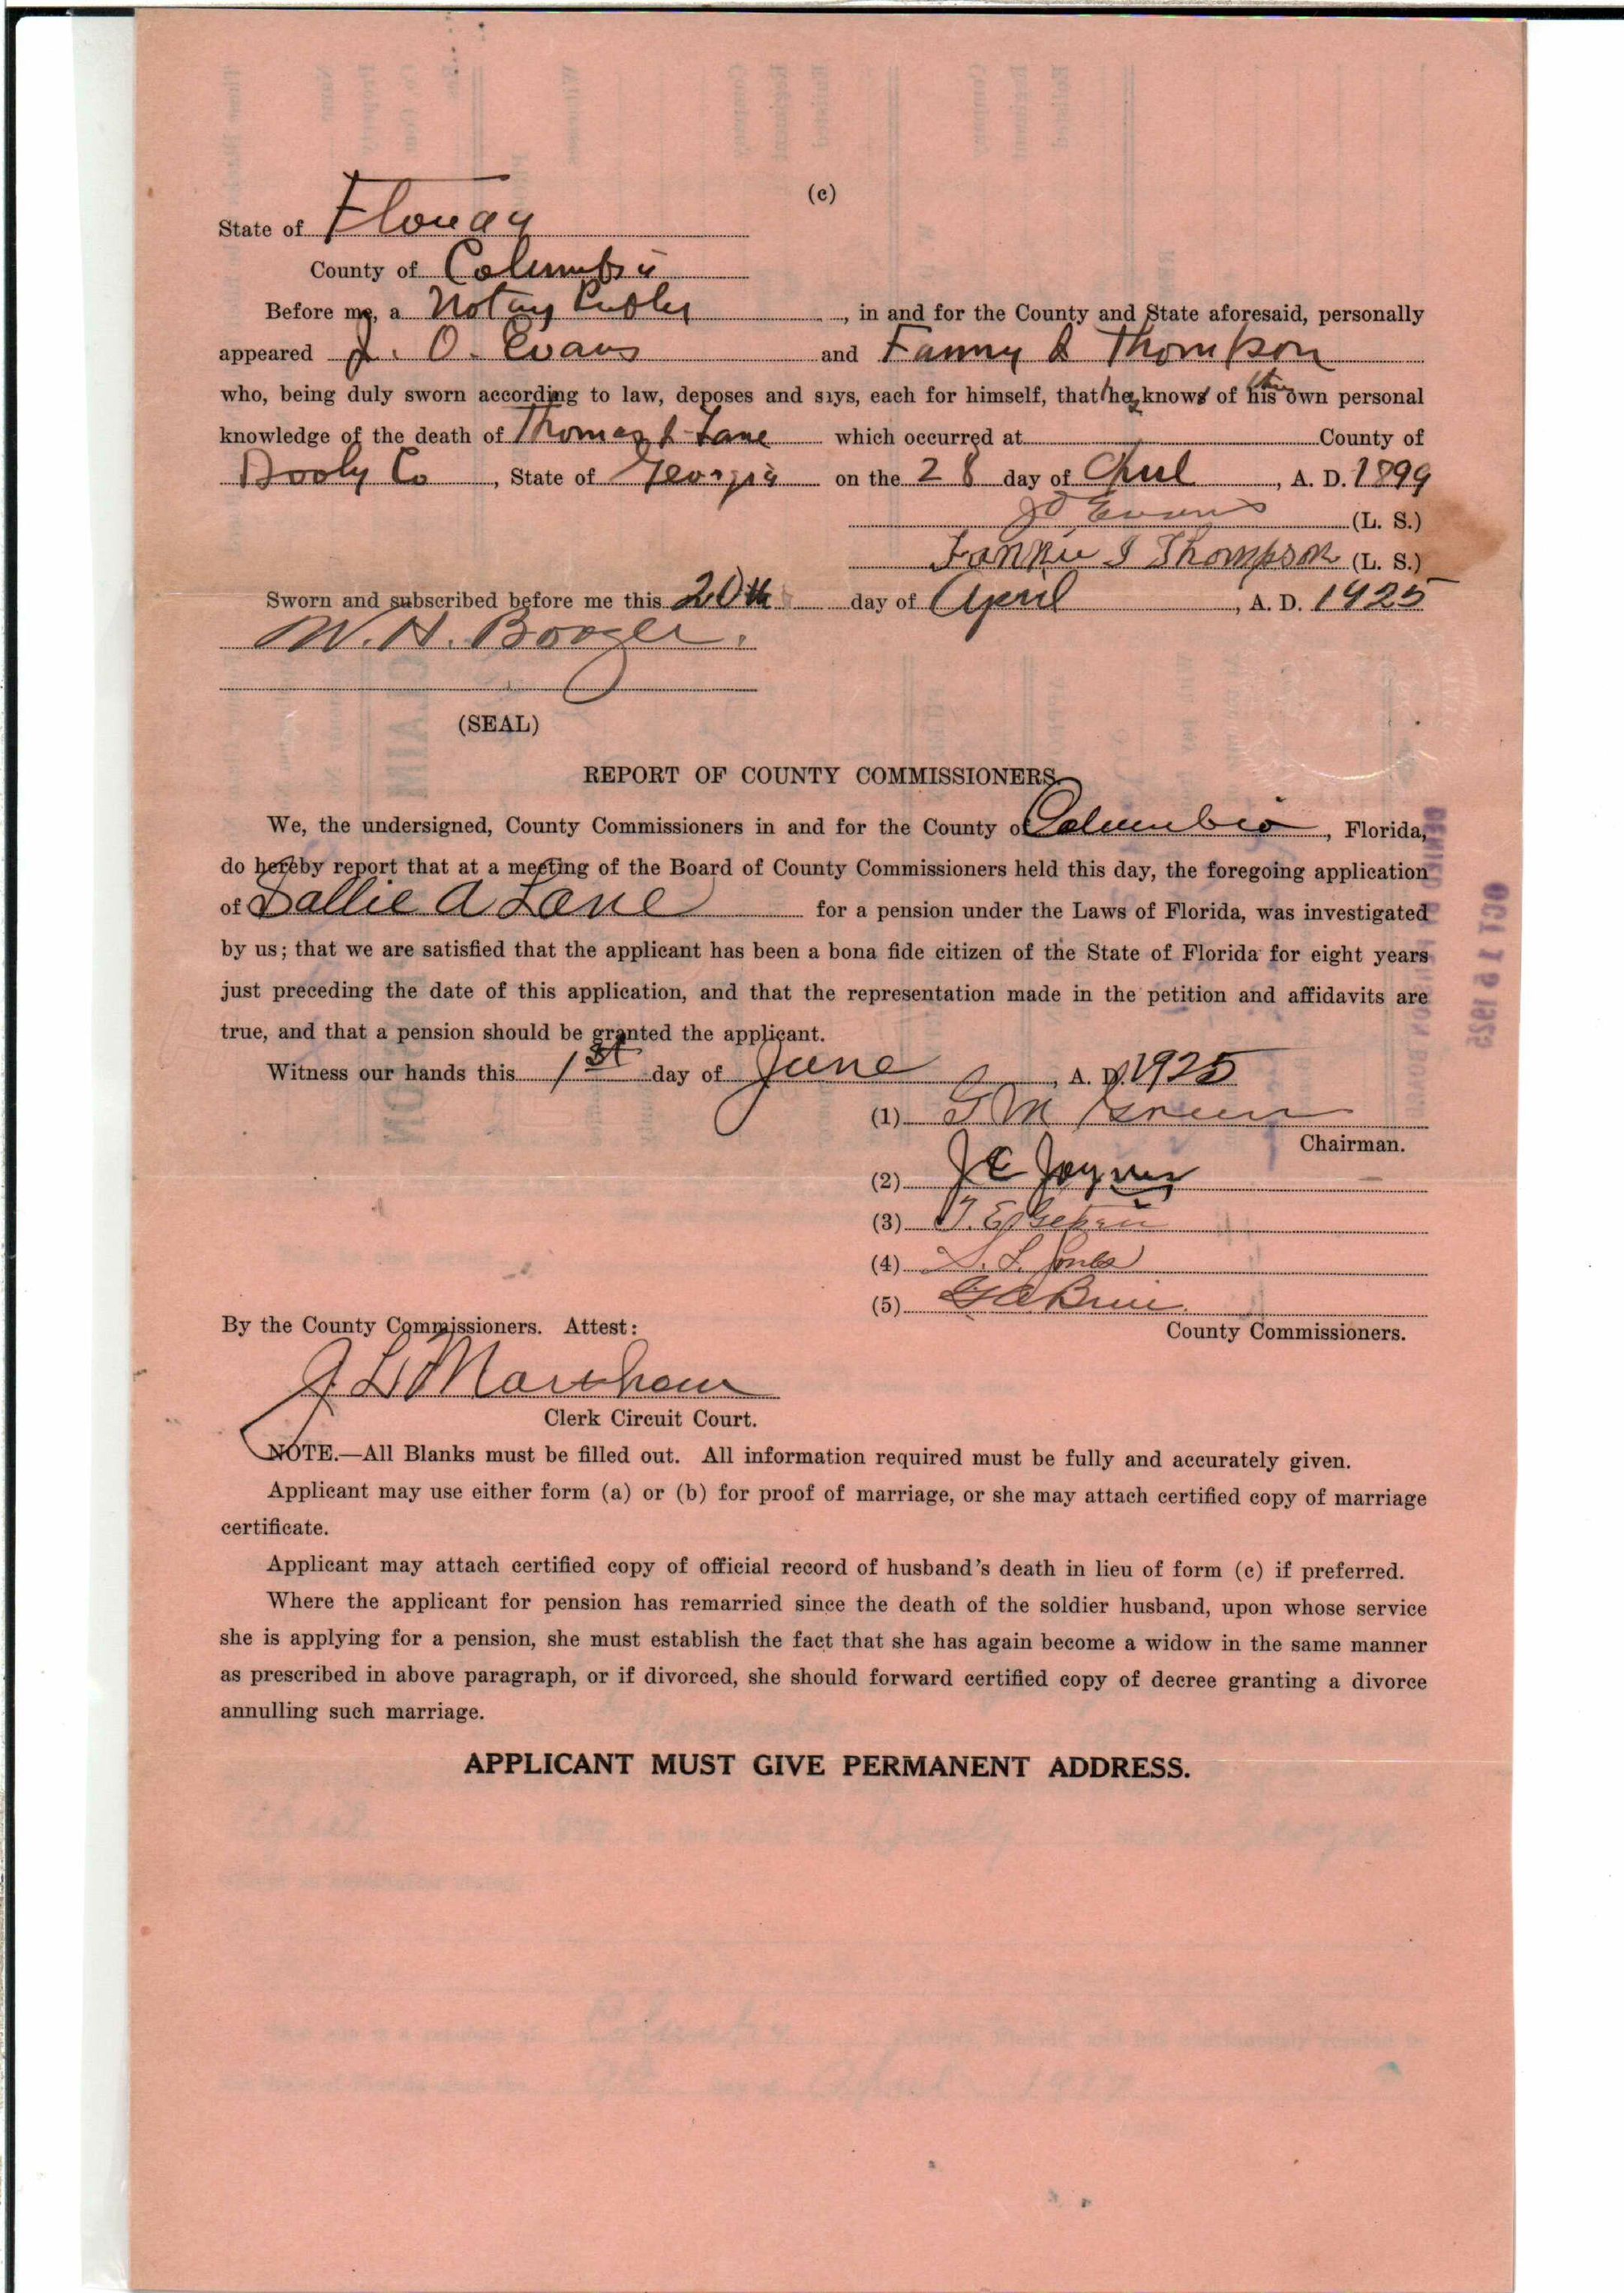 (c)
State of Florida
County of Columbia
Before me, a Notary Public, in and for the County and State aforesaid, personally
appeared J. O. Evans and Fanny I Thompson
who, being duly sworn according to law, deposes and says, each for himself, that they know of his their own personal
knowledge of the death of Thomas J Lane which occurred at County of
Dooly Co, State of Georgia on the 28 day of April, A. D. 1899
J O Evans (L. S.)
Fannie I Thompson (L. S.)
Sworn and subscribed before me this 20th day of April, A. D. 1925
W. H. Boozer.
(SEAL)
REPORT OF COUNTY COMMISSIONERS
We, the undersigned, County Commissioners in and for the County of Columbia, Florida,
do hereby report that at a meeting of the Board of County Commissioners held this day, the foregoing application
of Sallie A Lane for a pension under the Laws of Florida, was investigated
by us; that we are satisfied that the applicant has been a bona fide citizen of the State of Florida for eight years
just preceding the date of this application, and that the representation made in the petition and affidavits are
true, and that a pension should be granted the applicant.
Witness our hands this 1st day of June, A. D. 1925
(1) G M Green
Chairman.
(2) J E Joyner
(3) T. E.
(4) S. L. Jones
(5)
County Commissioners.
By the County Commissioners. Attest:
J. L. Markham
Clerk Circuit Court.
NOTE.—All Blanks must be filled out. All information required must be fully and accurately given.
Applicant may use either form (a) or (b) for proof of marriage, or she may attach certified copy of marriage
certificate.
Applicant may attach certified copy of official record of husband's death in lieu of form (c) if preferred.
Where the applicant for pension has remarried since the death of the soldier husband, upon whose service
she is applying for a pension, she must establish the fact that she has again become a widow in the same manner
as prescribed in above paragraph, or if divorced, she should forward certified copy of decree granting a divorce
annulling such marriage.
APPLICANT MUST GIVE PERMANENT ADDRESS.
OCT 16 1925